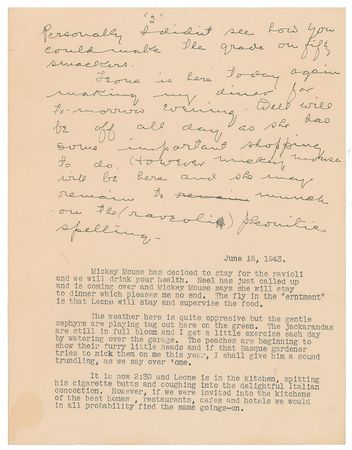 '2'
Personally I didn't see how you
could make the grade on fifty
smackers.
Leone is here today again
making my dinner for
to-morrow evening. Will
be off all day as she has
some important shopping
to do. However mickey mouse
will be here and she may
remain to munch
on the (raveolis) phonitic
spelling.
June 18, 1943.
Mickey Mouse has decided to stay for the ravioli
and we will drink your health. Neel has just called up
and is coming over and Mickey Mouse says she will stay
to dinner which pleases me no end. The fly in the "erntment"
is that Leone will stay and supervise the food.
The weather here is quite oppresive but the gentle
zephyrs are playing tag out here on the green. The jackarandas
are still in full bloom and I get a little exercise each day
by watering over the garage. The peaches are beginning to
show their furry little heads and if that Basque gardener
tries to nick them on me this year, I shall give him a sound
trundling, as we say over 'ome.
It is now 2:30 and Leone is in the kitchen, spitting
his cigarette butts and coughing into the delightful Italian
concoction. However, if we were invited into the kitchens
of the best homes , restaurants, cafes and hotels we would
in all probability find the same goings-on.